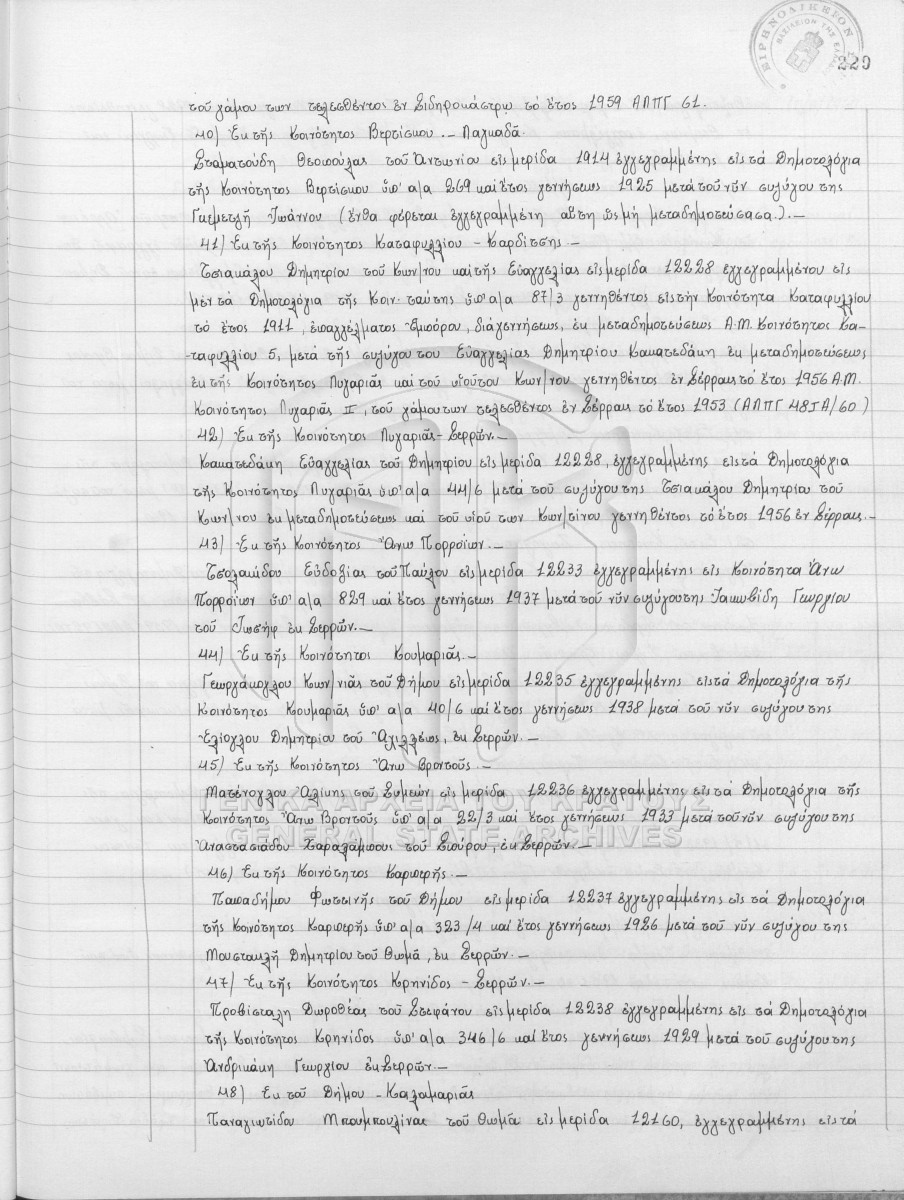 ΕΙΡΗΝΟΔΙΚΕΙΟΝ
ΒΑΣΙΛΕΙΟΝ ΤΗΣ
220
τοῦ γάμου των τελεσθέντος ἐν Σιδηροκάστρῳ τό ἔτος 1959 ΑΛΠΓ 61.
40) Ἐκ τῆς Κοινότητος Βερτίσκου. — Λαγκαδᾶ.
Σταματούδη Θεοπούλας τοῦ Ἀντωνίου εἰς μερίδα 1914 ἐγγεγραμμένης εἰς τά Δημοτολόγια
τῆς Κοινότητος Βερτίσκου ὑπ' α/α 269 καί ἔτος γεννήσεως 1925 μετά τοῦ νῦν συζύγου της
Γκεμετζῆ Ἰωάννου (ἔνθα φέρεται ἐγγεγραμμένη αὕτη ὡς μή μεταδημοτεύσασα.). —
41) Ἐκ τῆς Κοινότητος Καταφυλλίου - Καρδίτσης. —
Τσιακάλου Δημητρίου τοῦ Κων/νου καί τῆς Εὐαγγελίας εἰς μερίδα 12228 ἐγγεγραμένου εἰς
μέν τά Δημοτολόγια τῆς Κοιν. ταύτης ὑπ' α/α 87/3 γεννηθέντος εἰς τήν Κοινότητα Καταφυλλίου
τό ἔτος 1911, ἐπαγγέλματος Ἐμπόρου, διά γεννήσεως, ἐκ μεταδημοτεύσεως Α.Μ. Κοινότητος Κα-
-ταφυλλίου 5, μετά τῆς συζύγου του Εὐαγγελίας Δημητρίου Κακατεδάκη ἐκ μεταδημοτεύσεως
ἐκ τῆς Κοινότητος Λυγαριᾶς καί τοῦ υἱοῦ του Κων/νου γεννηθέντος ἐν Σέρραις τό ἔτος 1956 Α.Μ.
Κοινότητος Λυγαριᾶς II, τοῦ γάμου των τελεσθέντος ἐν Σέρραις τό ἔτος 1953 (ΑΛΠΓ 48ΙΑ/60)
42) Ἐκ τῆς Κοινότητος Λυγαριᾶς - Σερρῶν. —
Κακατεδάκη Εὐαγγελίας τοῦ Δημητρίου εἰς μερίδα 12228, ἐγγεγραμμένης εἰς τά Δημοτολόγια
τῆς Κοινότητος Λυγαριᾶς ὑπ' α/α 44/6 μετά τοῦ συζύγου της Τσιακάλου Δημητρίου τοῦ
Κων/νου ἐκ μεταδημοτεύσεως καί τοῦ υἱοῦ των Κων/τίνου γεννηθέντος τό ἔτος 1956 ἐν Σέρραις. —
43) Ἐκ τῆς Κοινότητος Ἄνω Πορροΐων. —
Τσολακίδου Εὐδοξίας τοῦ Παύλου εἰς μερίδα 12233 ἐγγεγραμμένης εἰς Κοινότητα Ἄνω
Πορροΐων ὑπ' α/α 829 καί ἔτος γεννήσεως 1937 μετά τοῦ νῦν συζύγου της Ἰακωβίδη Γεωργίου
τοῦ Ἰωσήφ ἐκ Σερρῶν. —
44) Ἐκ τῆς Κοινότητος Κουμαριᾶς. —
Γεωργάκογλου Κων/νιᾶς τοῦ Δήμου εἰς μερίδα 12235 ἐγγεγραμμένης εἰς τά Δημοτολόγια τῆς
Κοινότητος Κουμαριᾶς ὑπ' α/α 40/6 καί ἔτος γεννήσεως 1938 μετά τοῦ νῦν συζύγου της
Ἐλίογλου Δημητρίου τοῦ Ἀχιλλέως, ἐκ Σερρῶν. —
45) Ἐκ τῆς Κοινότητος Ἄνω Βροντοῦς. —
Ματένογλου Ἀλίκης τοῦ Συμεών εἰς μερίδα 12236 ἐγγεγραμμένης εἰς τά Δημοτολόγια τῆς
Κοινότητος Ἄνω Βροντοῦς ὑπ' α/α 22/3 καί ἔτος γεννήσεως 1933 μετά τοῦ νῦν συζύγου της
Ἀναστασιάδου Χαραλάμπους τοῦ Σπύρου, ἐκ Σερρῶν. —
46) Ἐκ τῆς Κοινότητος Καρπερῆς. —
Παπαδήμου Φωτεινῆς τοῦ Δήμου εἰς μερίδα 12237 ἐγγεγραμμένης εἰς τά Δημοτολόγια
τῆς Κοινότητος Καρπερῆς ὑπ' α/α 323/4 καί ἔτος γεννήσεως 1926 μετά τοῦ νῦν συζύγου της
Μουστακλῆ Δημητρίου τοῦ Θωμᾶ, ἐκ Σερρῶν. —
47) Ἐκ τῆς Κοινότητος Κρηνίδος - Σερρῶν. —
Προβίσταλη Δωροθέας τοῦ Στεφάνου εἰς μερίδα 12238 ἐγγεγραμμένης εἰς τά Δημοτολόγια
τῆς Κοινότητος Κρηνίδος ὑπ' α/α 346/6 καί ἔτος γεννήσεως 1929 μετά τοῦ συζύγου της
Ἀνδρικάκη Γεωργίου ἐκ Σερρῶν. —
48) Ἐκ τοῦ Δήμου - Καλαμαριᾶς
Παναγιωτίδου Μπουμπουλίνας τοῦ Θωμᾶ εἰς μερίδα 12160, ἐγγεγραμμένης εἰς τά
ΓΕΝΙΚΑ ΑΡΧΕΙΑ ΤΟΥ ΚΡΑΤΟΥΣ
GENERAL STATE ARCHIVES